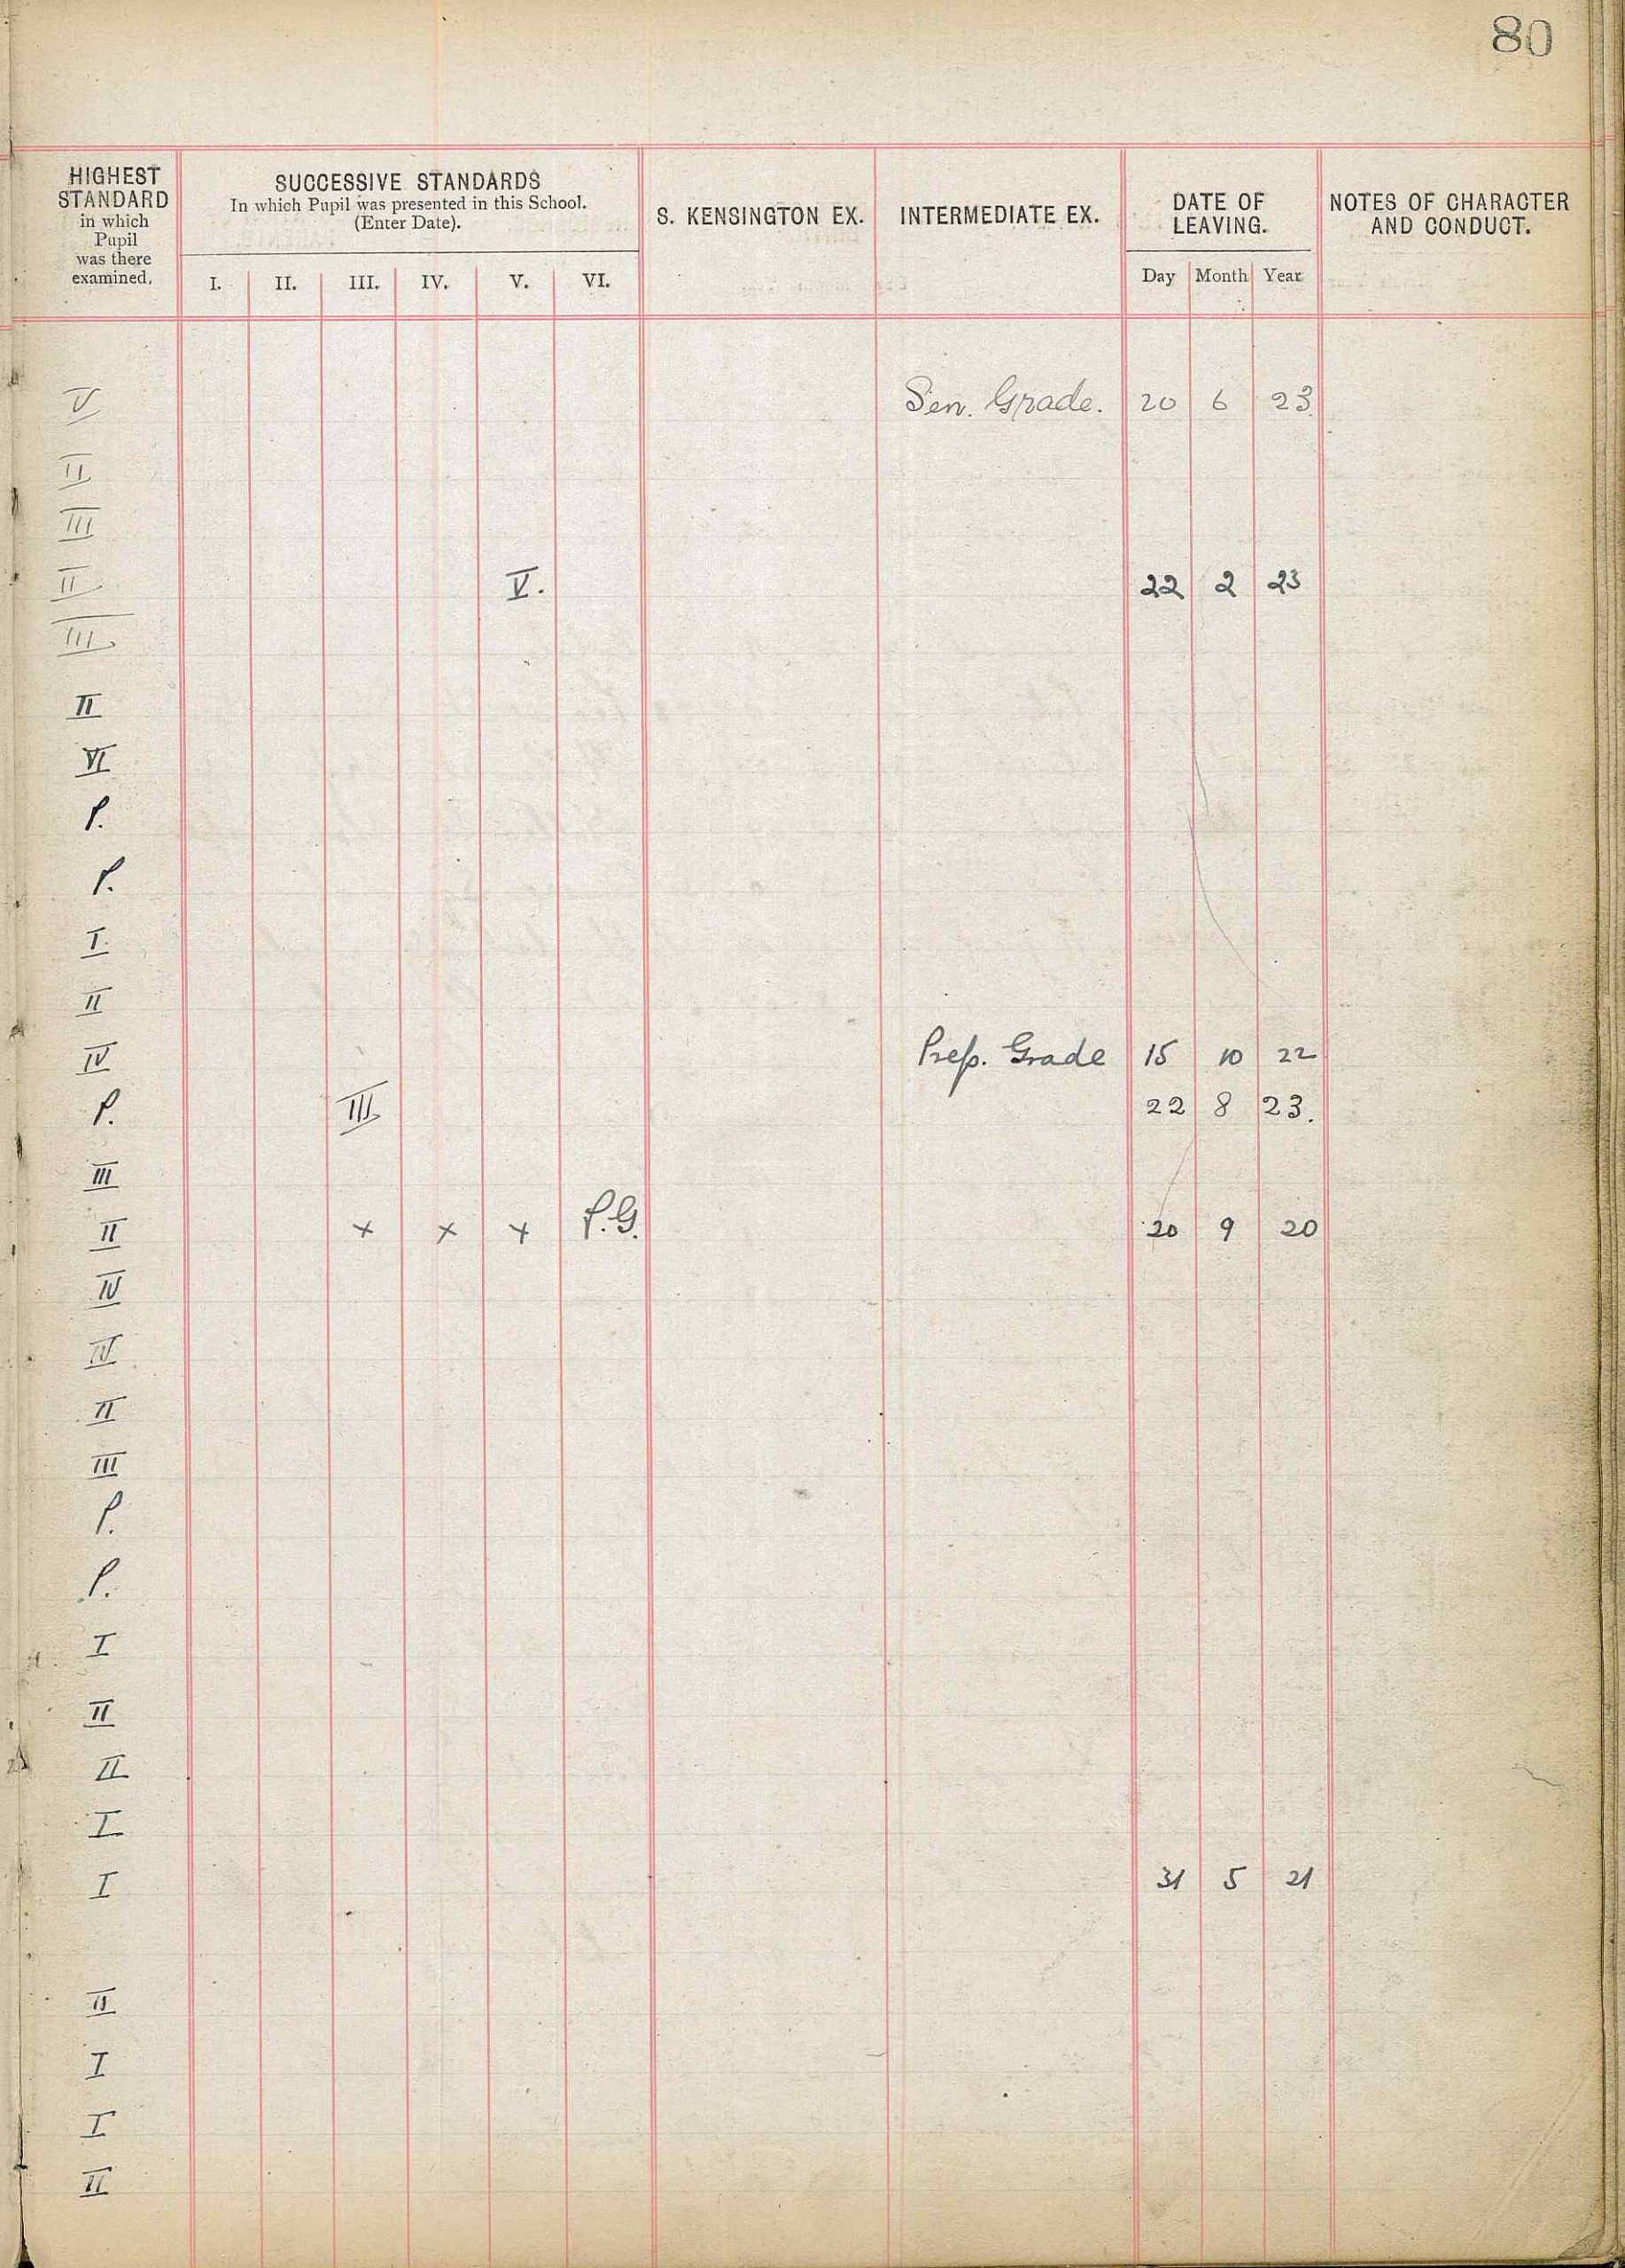 80
HIGHEST STANDARD in which Pupil was there examined.
SUCCESSIVE STANDARDS
In which Pupil was presented in this School.
(Enter Date).
I. II. III. IV. V. VI.
S. KENSINGTON EX.
INTERMEDIATE EX.
DATE OF LEAVING.
Day Month Year
NOTES OF CHARACTER AND CONDUCT.
V Sen. Grade. 20 6 23
II
III
II V. 22 2 23
III
II
VI
P.
P.
I
II
IV Prep. Grade 15 10 22
P. III 22 8 23.
III
II x x x P.G. 20 9 20
IV
IV
II
III
P.
P.
I
II
II
I
I 31 5 21
II
I
I
II